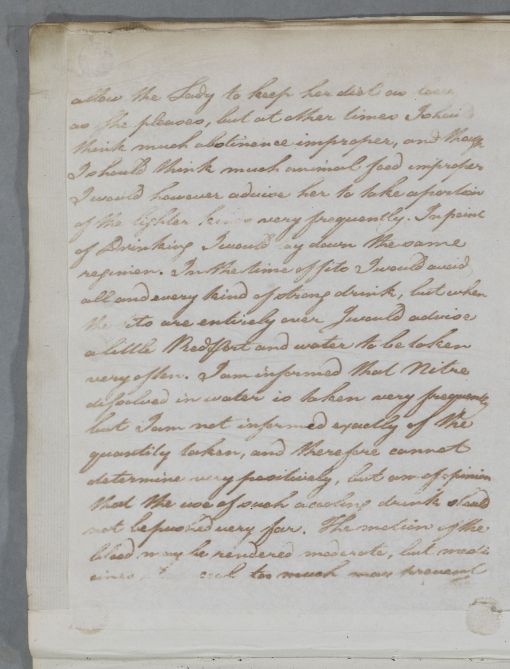 allow the Lady to keep her diet as low
as she pleases, but at other times I should
think much abstinence improper, and tho
I should think much animal food improper
I would however advise her to take a portion
of the lighter kinds very frequently. In point
of Drinking I would lay down the same
regimen. In the time of fits I would avoid
all and every kind of strong drink, but when
the fits are entirely over I would advise
a little Red Port and water to be taken
very often. I am informed that Nitre
dissolved in water is taken very frequently
but I am not informed exactly of the
quantity taken, and therefore cannot
determine very positively, but am of opinion
that the use of such a cooling drink should
not be pushed very far. The motion of the
blood may be rendered moderate, but medi
cines too much may prevent